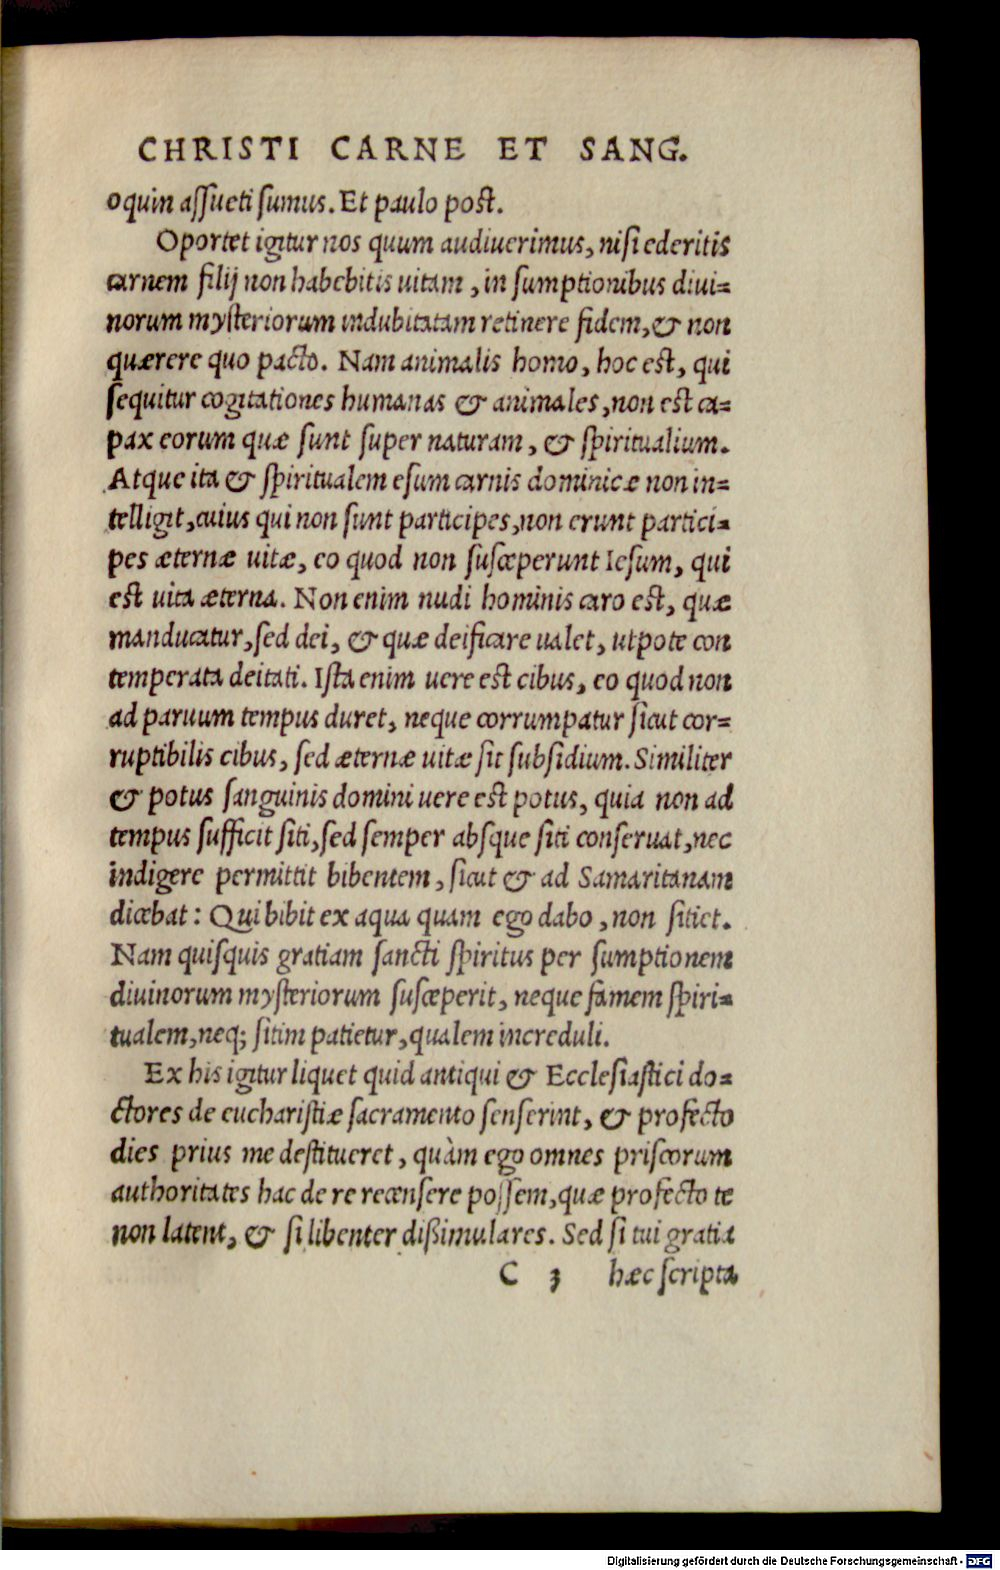 CHRISTI CARNE ET SANG.
oquin aſſueti ſumus. Et paulo post.
Oportet igitur nos quum audiuerimus, niſi ederitis
carnem filij non habebitis uitam, in ſumptionibus diui=
norum myſteriorum indubitatam retinere fidem, & non
quærere quo pacto. Nam animalis homo, hoc est, qui
ſequitur cogitationes humanas & animales, non est ca=
pax eorum quæ ſunt ſuper naturam, & ſpiritualium.
Atque ita & ſpiritualem eſum carnis dominicæ non in=
telligit, cuius qui non ſunt participes, non erunt partici=
pes æternæ uitæ, eo quod non ſuſceperunt Ieſum, qui
est uita æterna. Non enim nudi hominis caro est, quæ
manducatur, ſed dei, & quæ deificare ualet, utpote con
temperata deitati. Iſta enim uere est cibus, eo quod non
ad paruum tempus duret, neque corrumpatur ſicut cor=
ruptibilis cibus, ſed æternæ uitæ ſit ſubſidium. Similiter
& potus ſanguinis domini uere est potus, quia non ad
tempus ſufficit ſiti, ſed ſemper abſque ſiti conſeruat, nec
indigere permittit bibentem, ſicut & ad Samaritanam
dicebat: Qui bibit ex aqua quam ego dabo, non ſitiet.
Nam quiſquis gratiam ſancti ſpiritus per ſumptionem
diuinorum myſteriorum ſuſceperit, neque famem ſpiri=
tualem, neq; ſitim patietur, qualem increduli.
Ex his igitur liquet quid antiqui & Eccleſiaſtici do=
ctores de euchariſtiæ ſacramento ſenſerint, & profecto
dies prius me deſtitueret, quàm ego omnes priſcorum
authoritates hac de re recenſere poſſem, quæ profecto te
non latent, & ſi libenter dißimulares. Sed ſi tui gratia
C 3 hæc ſcripta
Digitalisierung gefördert durch die Deutsche Forschungsgemeinschaft - DFG